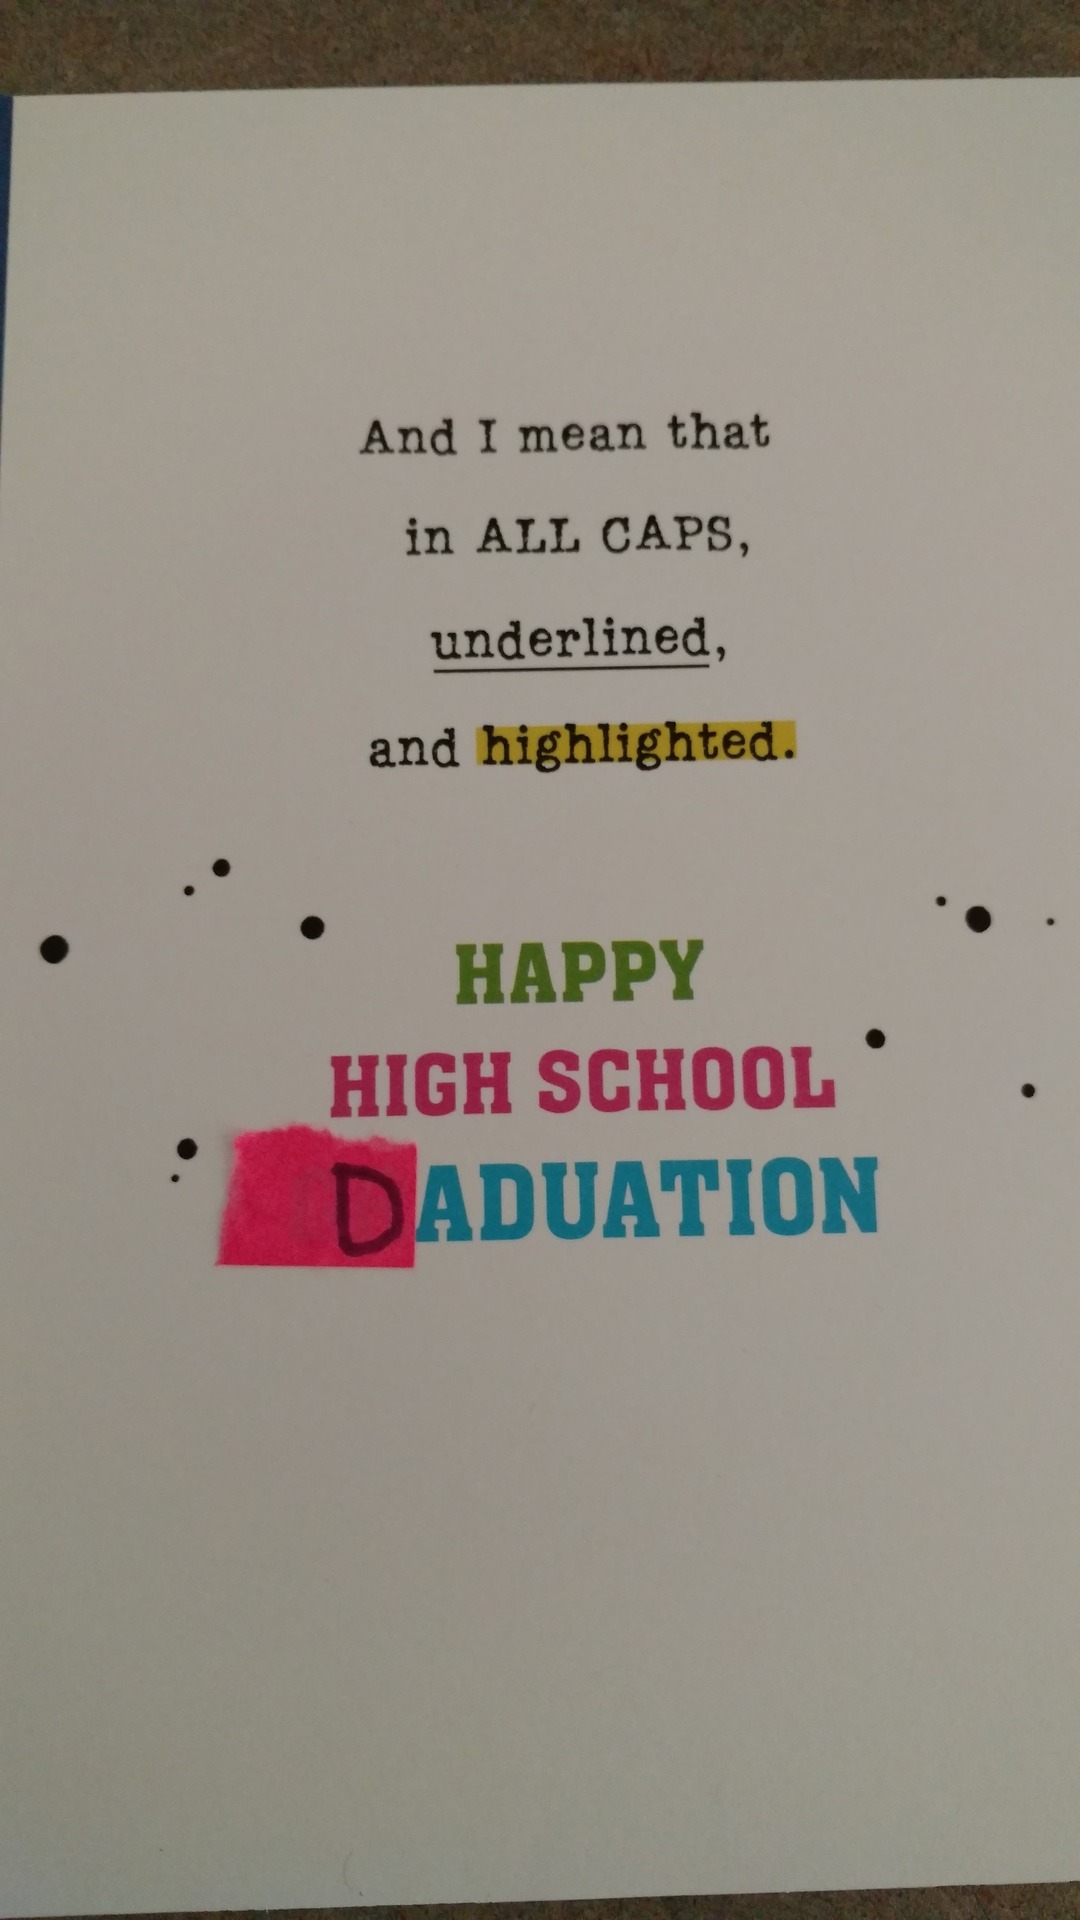 And I mean that
in ALL CAPS,
underlined,
and highlighted.
HAPPY
HIGH SCHOOL
DADUATION